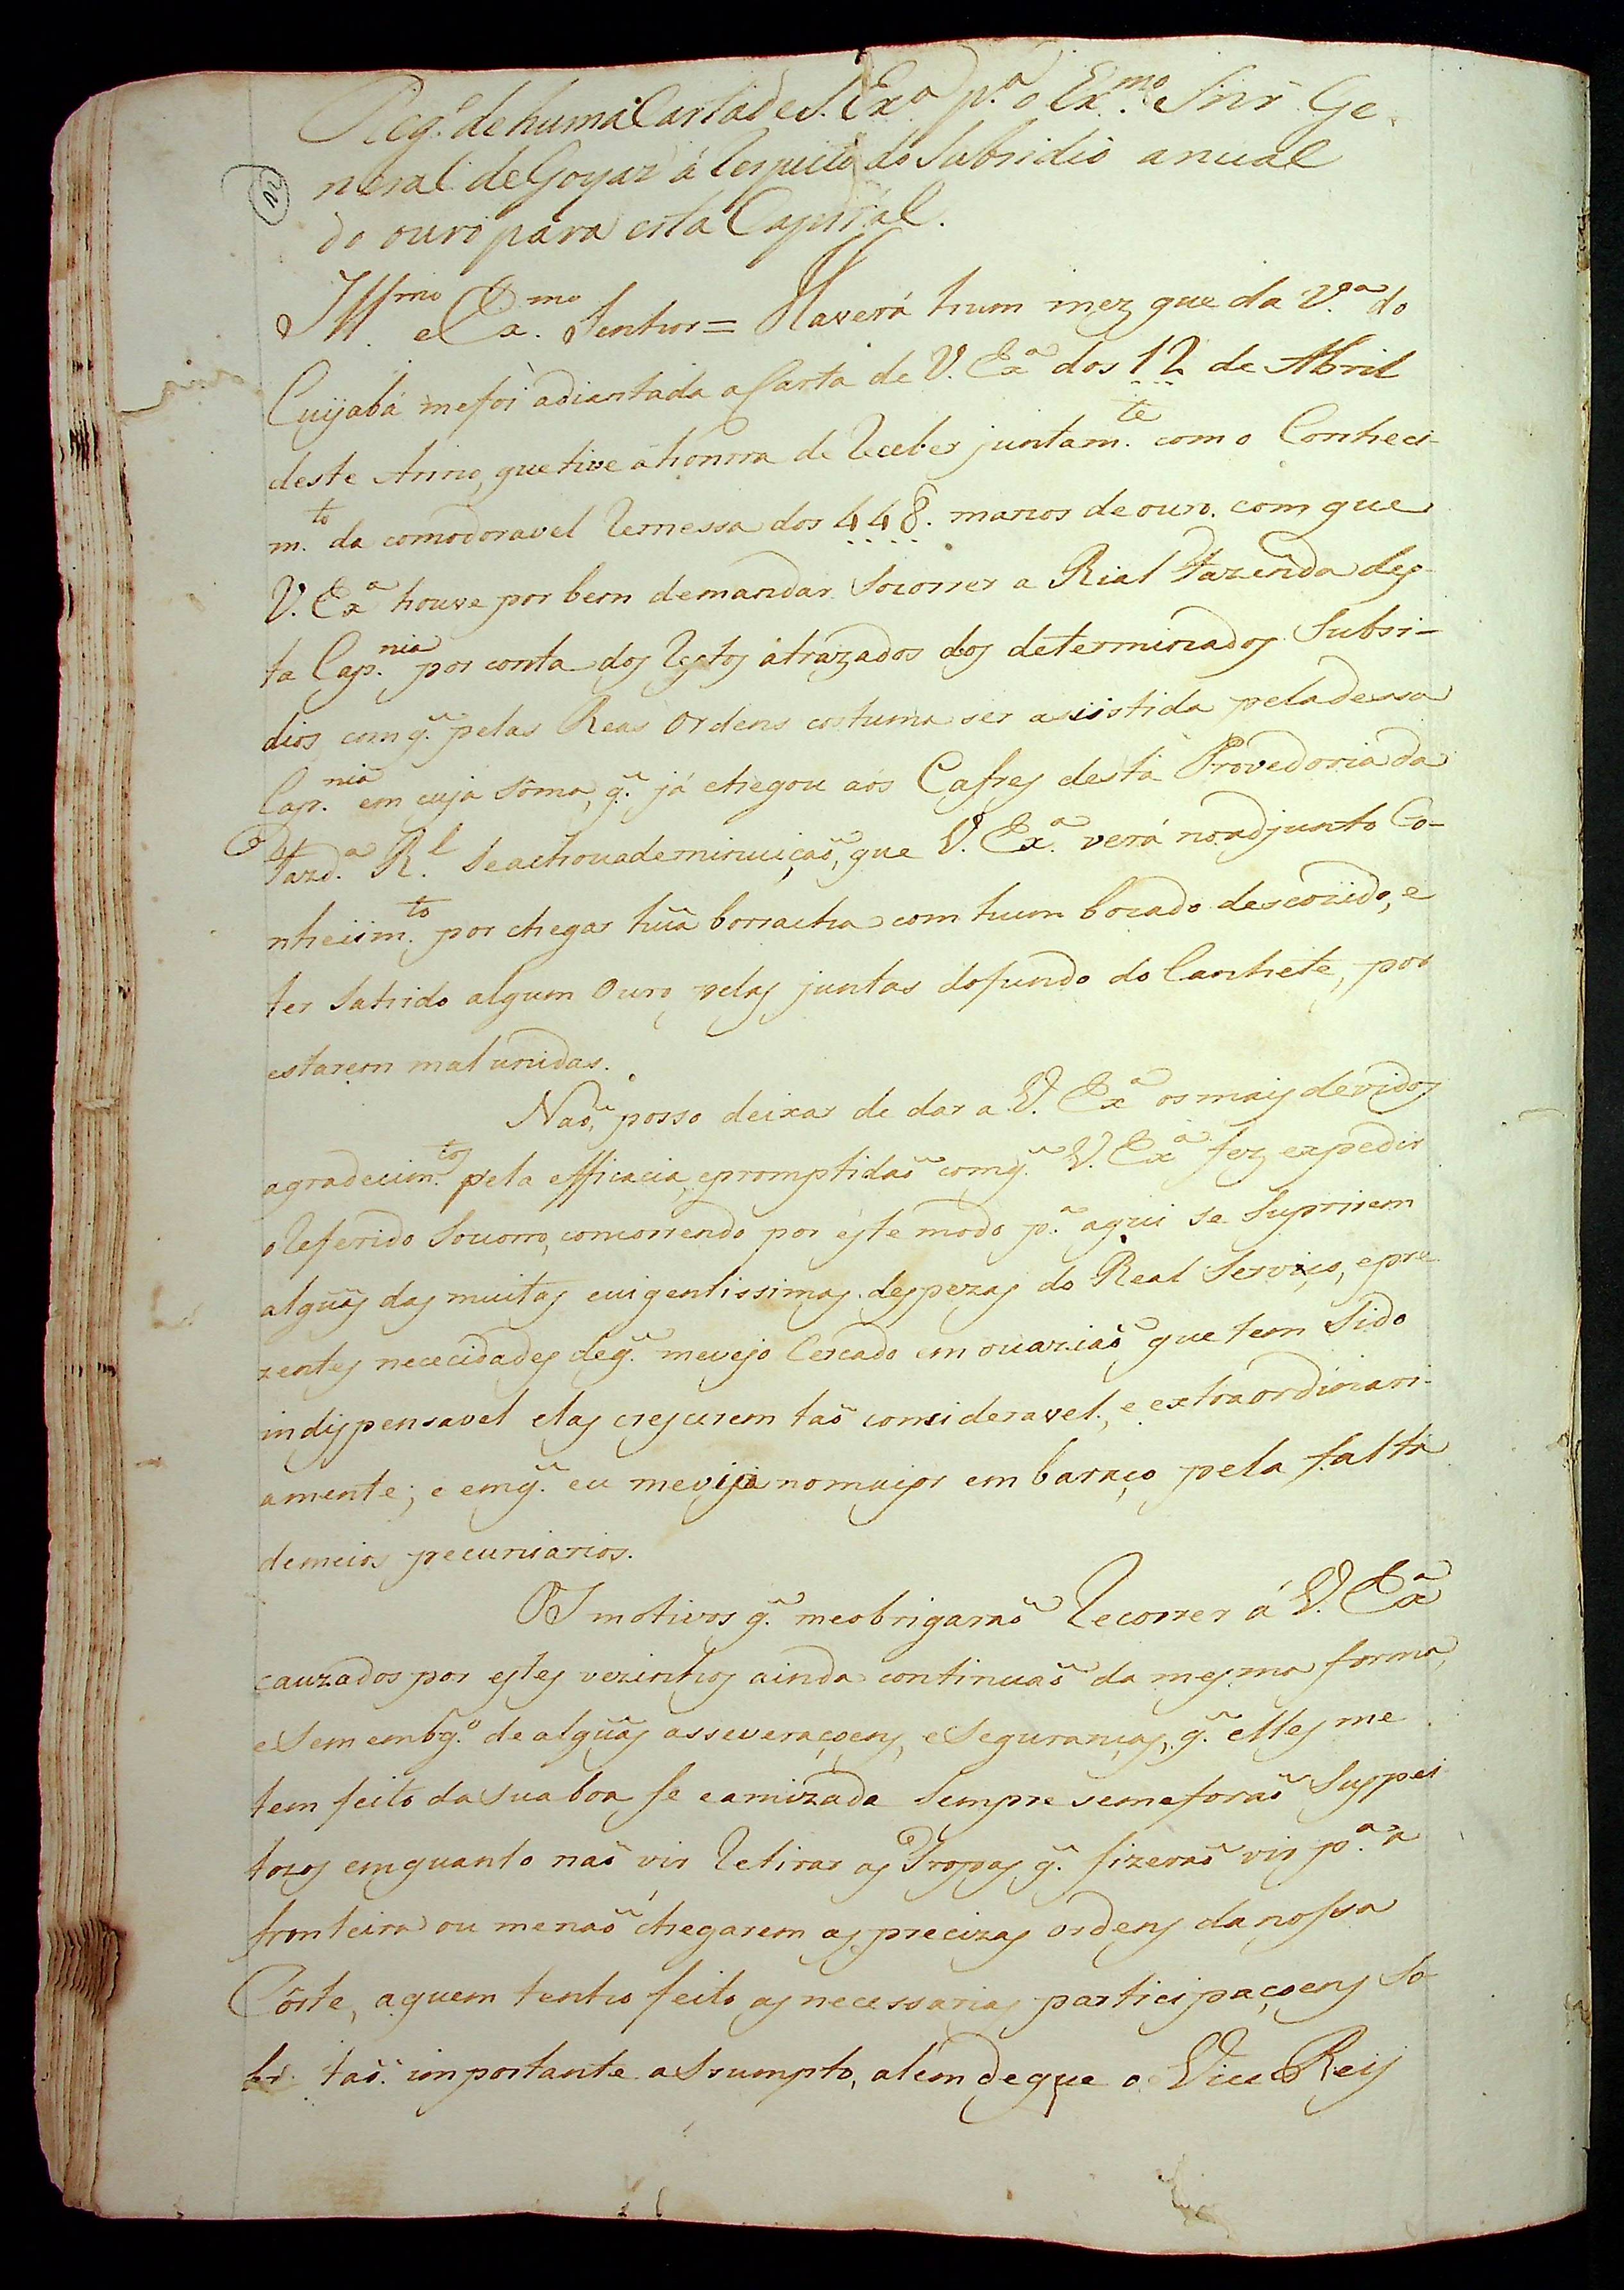 Reg.º de huma Carta de S. Ex.ª p.ª o Ex.mo Snr Ge-
neral de Goyaz á respeito do Subsidio anual
do ouro para esta Capital.
Ill.mo e Ex.mo Senhor = Haverá hum mez que da V.ª do
Cuyabá me foi adiantada a Carta de V. Ex.ª dos 12 de Abril
deste Anno, que tive a honrra de receber juntam.te com o Conheci-
m.to da comodoravel remessa dos 448. marcos de ouro. com que
V. Ex.ª houve por bem demandar Socorrer a Rial Fazenda des-
ta Cap.nia por conta dos restos átrazados dos determinados Subsi-
dios com q.̃ pelas Reas Ordens costuma ser asistida pela dessa
Cap.nia em cuja sôma, q.̃ já chegou aós Cofres desta Provedoria da
Fazd.ª R.l se achou a deminuiçaõ, que V. Ex.ª verá no adjunto Co-
nhecim.to por chegar huã borracha com hum bocado descozido, e
ter sahido algum Ouro pelas juntas do fundo do Canhete, por
estarem mal unidas.
Naõ posso deixar de dar a V. Ex.ª os mais devidos
agradecim.tos pela efficacia, e promptidaõ com q.̃ V. Ex.ª fez expedir
o referido Socorro, concorrendo por este modo p.ª aqui se Suprirem
alguãs das muitas euigentissimas despezas do Real Serviço, e pre-
zentes nececidades de q.̃ me vejo Cercado em ocaziaõ que tem Sido
indispensavel elas crescerem taõ consideravel, e extraordinari-
amente; e em q.̃ eu me via no maior embaraço pela falta
de meios pecuniarios.
OS motivos q.̃ me obrigaraõ recorrer á V. Ex.ª
cauzados por estes vezinhos ainda continuaõ da mesma forma,
e Sem embg.º de alguãs asseveraçoens, e Seguranças, q.̃ elles me
tem feito da Sua boa fe e amizade Sempre se me foraõ Suspei
tozos emquanto naõ vir retirar as Tropas q.̃ fizeraõ vir p.ª a
fronteira ou me naõ chegarem as precizas ordens da nossa
Côrte, a quem tenho feito as necessarias participaçoens So-
br. taõ importante assumpto, alem de que o Vice Rey